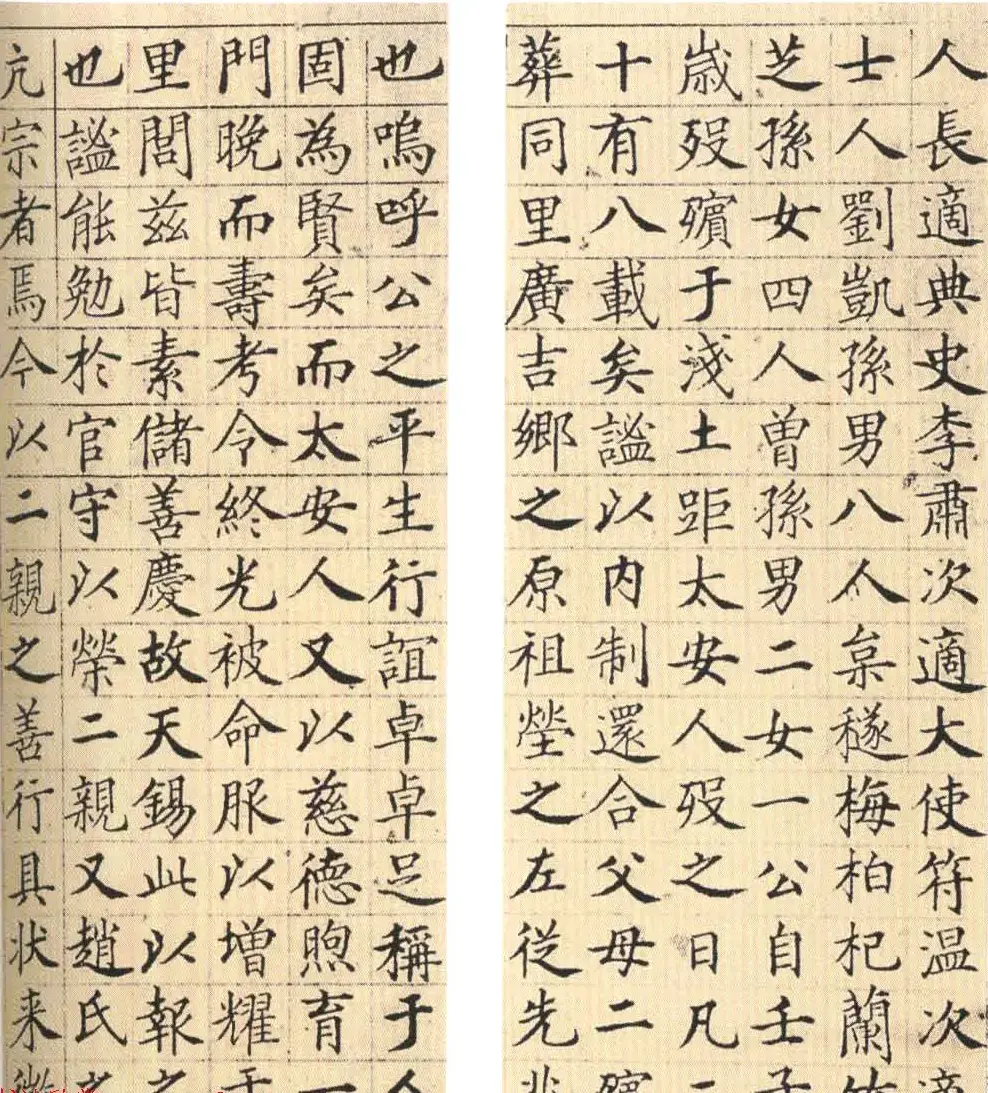 人長適典史李肅次適大使符温次適
士人劉凱孫男八人枲穟梅柏杞蘭竹
芝孫女四人曾孫男二女一公自壬子
歲歿殯于淺土距太安人歿之日凡二
十有八載矣謐以内制還合父母二殯
葬同里廣吉鄉之原祖塋之左從先兆
也嗚呼公之平生行誼卓卓足稱于人
固為賢矣而太安人又以慈德煦育一
門晚而壽考令終光被命服以增耀于
里閭兹皆素儲善慶故天錫此以報之
也謐能勉於官守以榮二親又趙氏之
亢宗者焉今以二親之善行具状来徵